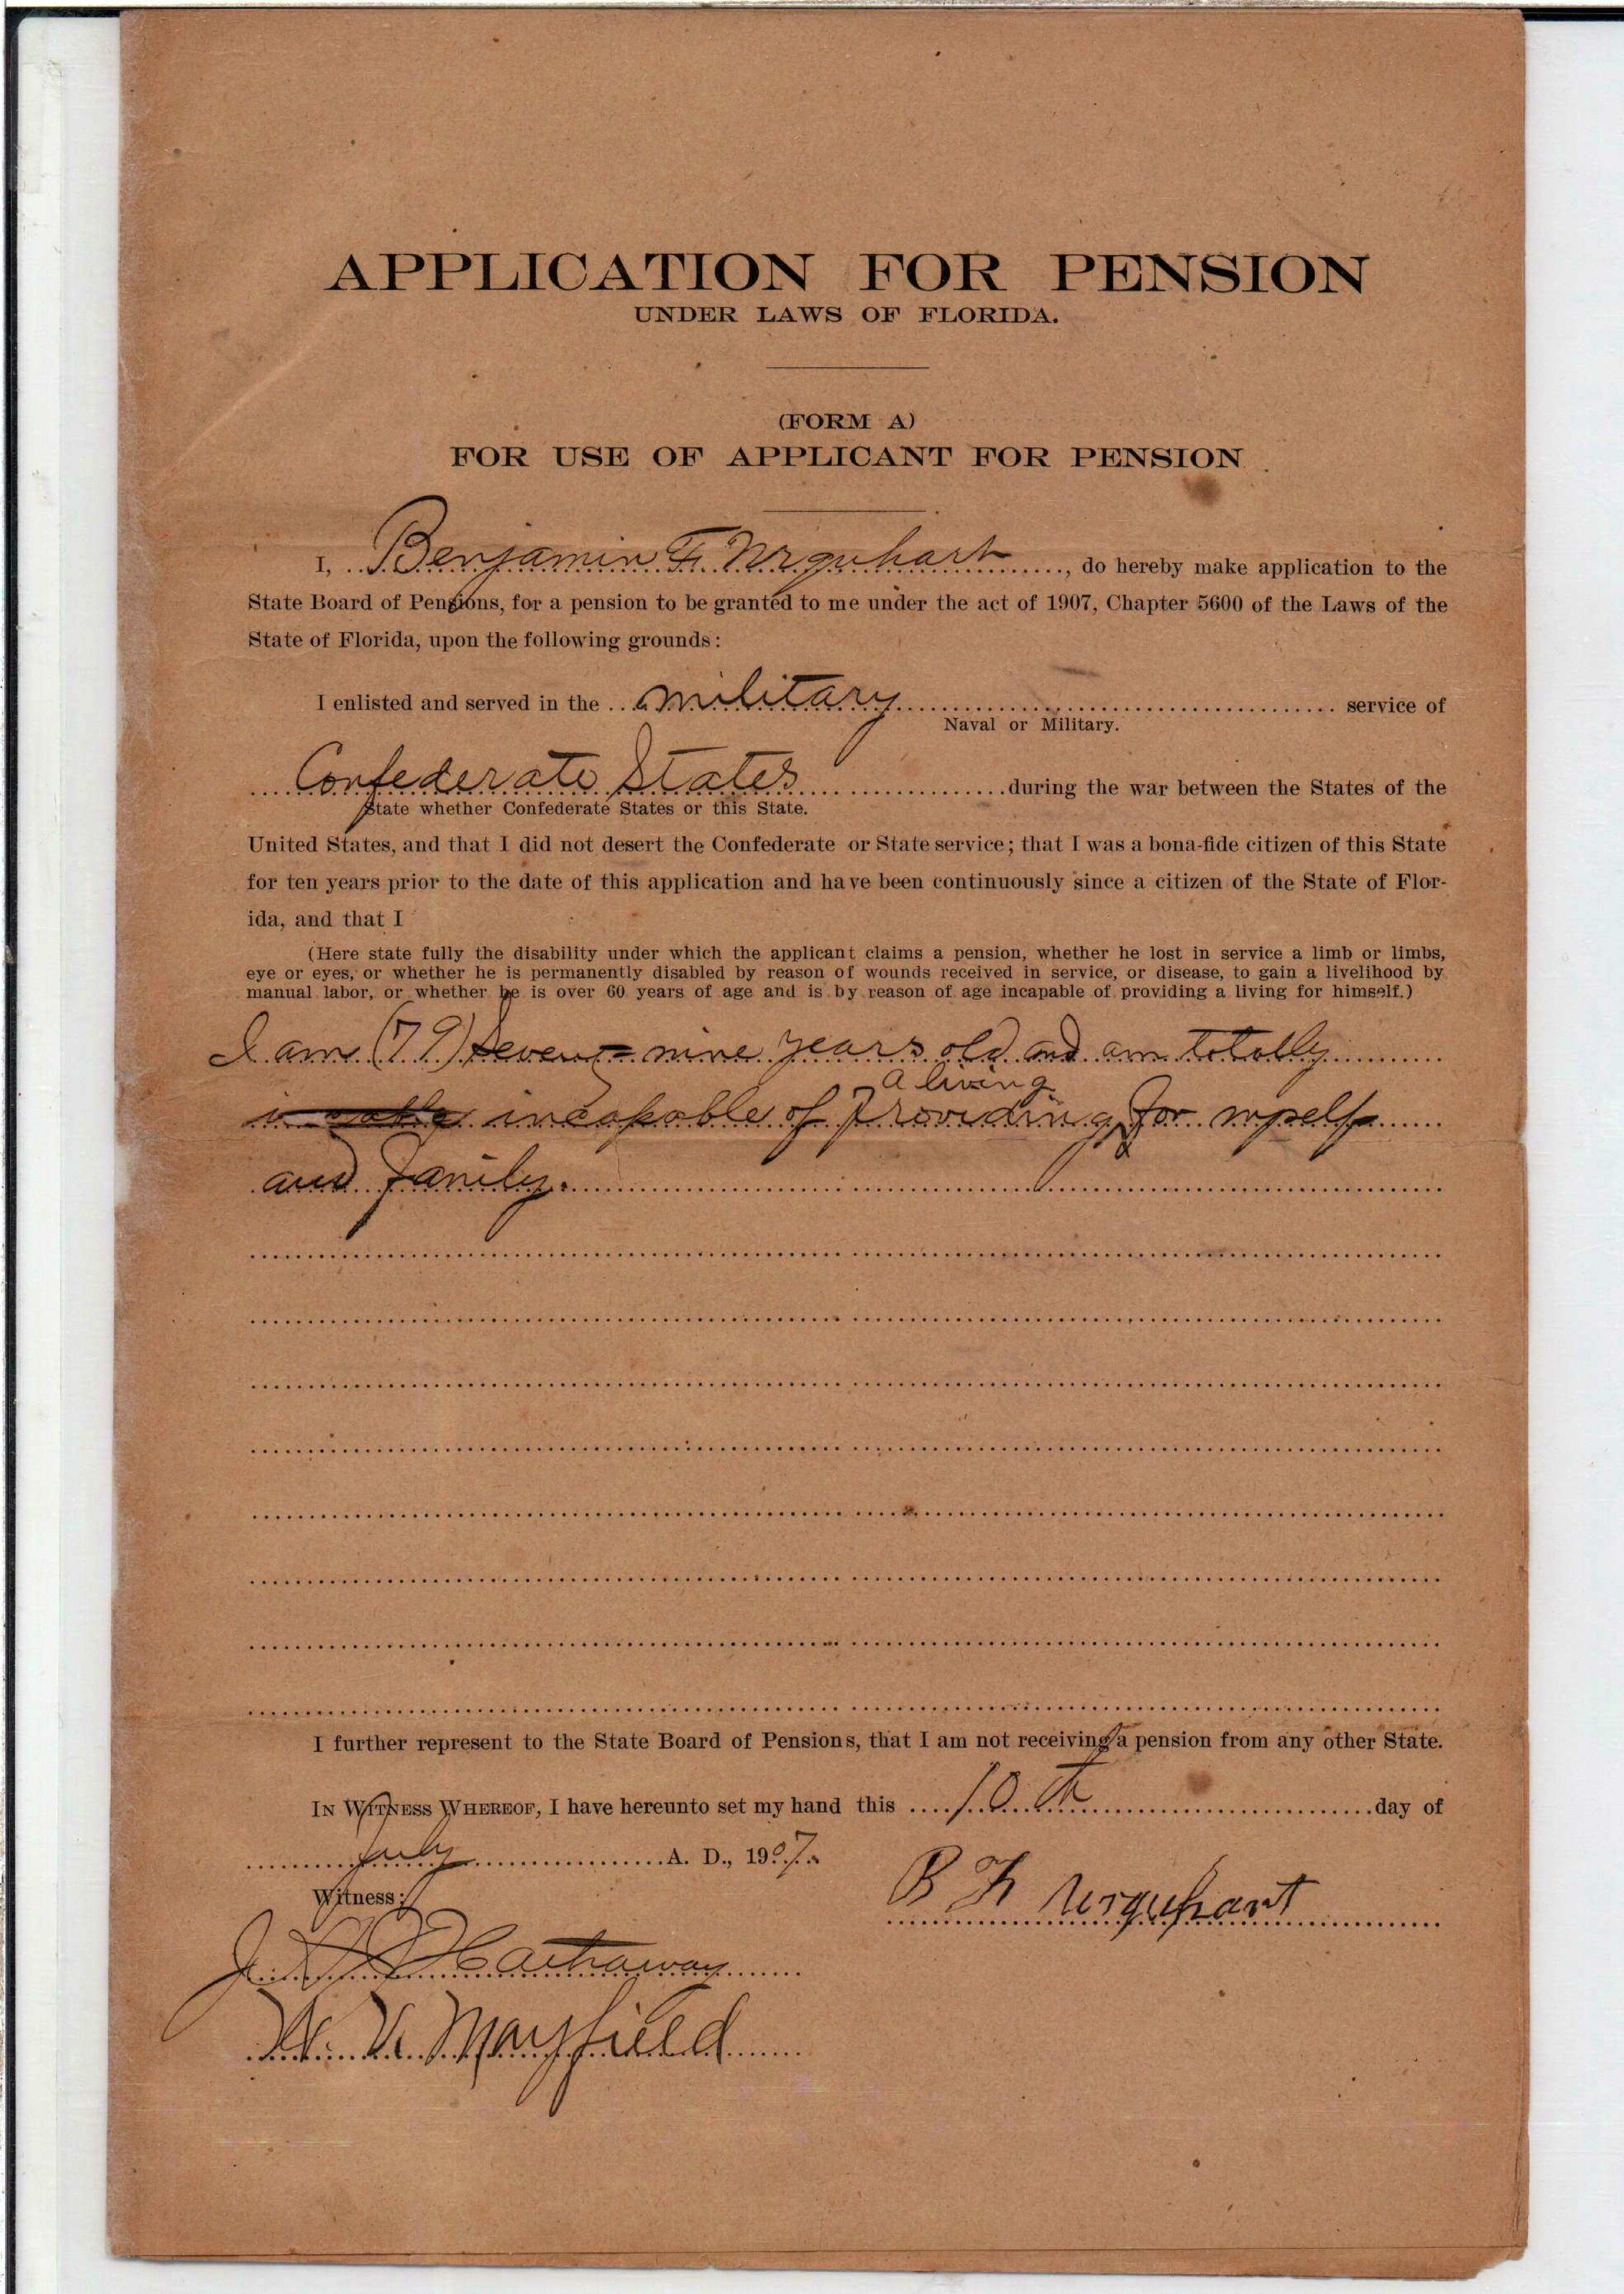 APPLICATION FOR PENSION
UNDER LAWS OF FLORIDA.
(FORM A)
FOR USE OF APPLICANT FOR PENSION
I, Benjamin F. Urquhart, do hereby make application to the
State Board of Pensions, for a pension to be granted to me under the act of 1907, Chapter 5600 of the Laws of the
State of Florida, upon the following grounds:
I enlisted and served in the military service of
Naval or Military.
Confederate States during the war between the States of the
State whether Confederate States or this State.
United States, and that I did not desert the Confederate or State service; that I was a bona-fide citizen of this State
for ten years prior to the date of this application and have been continuously since a citizen of the State of Flor-
ida, and that I
(Here state fully the disability under which the applicant claims a pension, whether he lost in service a limb or limbs,
eye or eyes, or whether he is permanently disabled by reason of wounds received in service, or disease, to gain a livelihood by
manual labor, or whether he is over 60 years of age and is by reason of age incapable of providing a living for himself.)
I am (79) Seventy-nine years old and am totally
a living
incapable of Providing for myself
and family.
I further represent to the State Board of Pensions, that I am not receiving a pension from any other State.
IN WITNESS WHEREOF, I have hereunto set my hand this 10th day of
July A. D., 1907.
Witness:
B F Urquhart
Hathaway
W. V. Mayfield